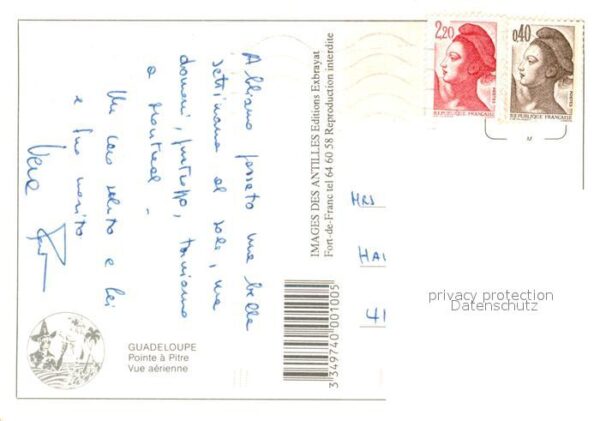 Abbiamo passato una bella
settimana al sole, ma
domani, purtroppo, torniamo
a Montreal.
Un caro saluto a lei
e suo marito
Vera
IMAGES DES ANTILLES Editions Exbrayat
Fort-de-Franc tel 64 60 58 Reproduction interdite
2,20
REPUBLIQUE FRANÇAISE
0,40
REPUBLIQUE FRANÇAISE
MRS
HA
41
privacy protection
Datenschutz
3 349740 001005
GUADELOUPE
Pointe à Pitre
Vue aérienne